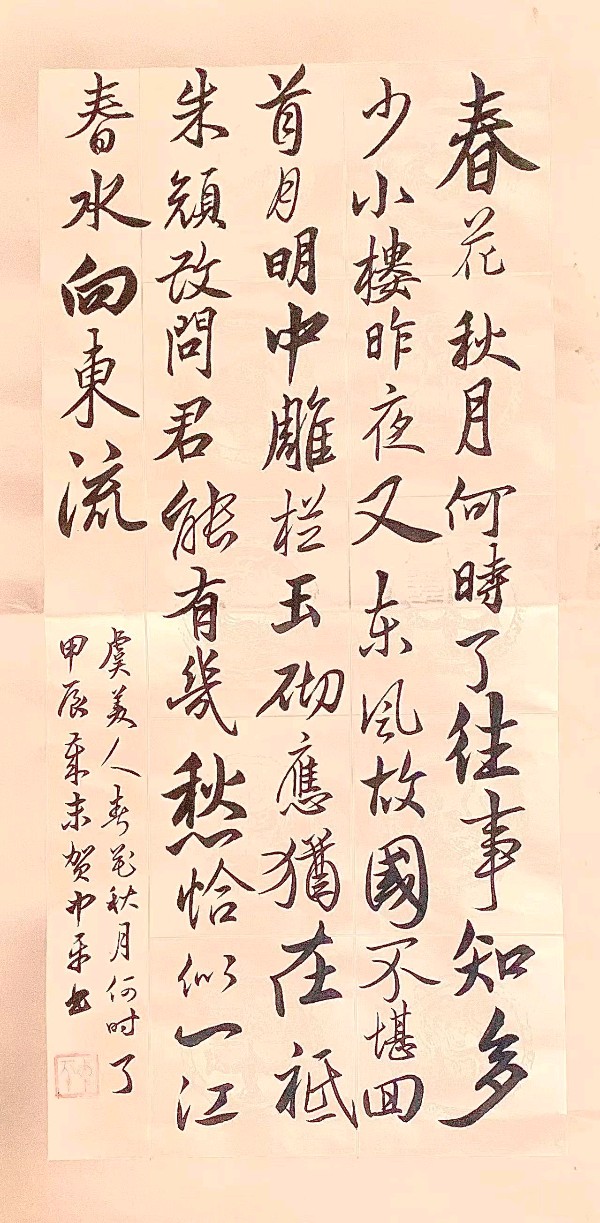 春花秋月何時了往事知多
少小樓昨夜又东风故國不堪回
首月明中雕栏玉砌應猶在祗
朱顔改問君能有幾愁恰似一江
春水向東流
虞美人春花秋月何时了
甲辰年末贺中平书